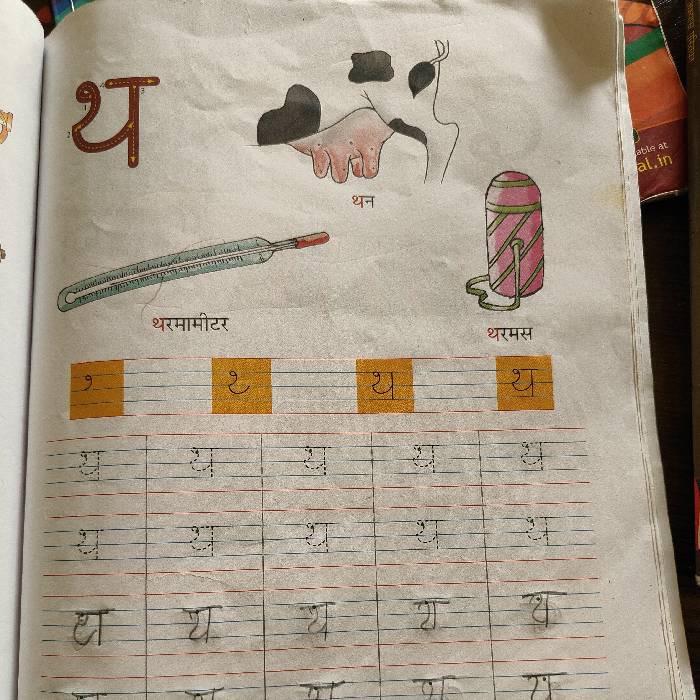 थ
थन
थरमामीटर
थरमस
थ थ
थ थ थ थ थ
थ थ थ थ थ
थ थ थ थ थ
able at
al.in